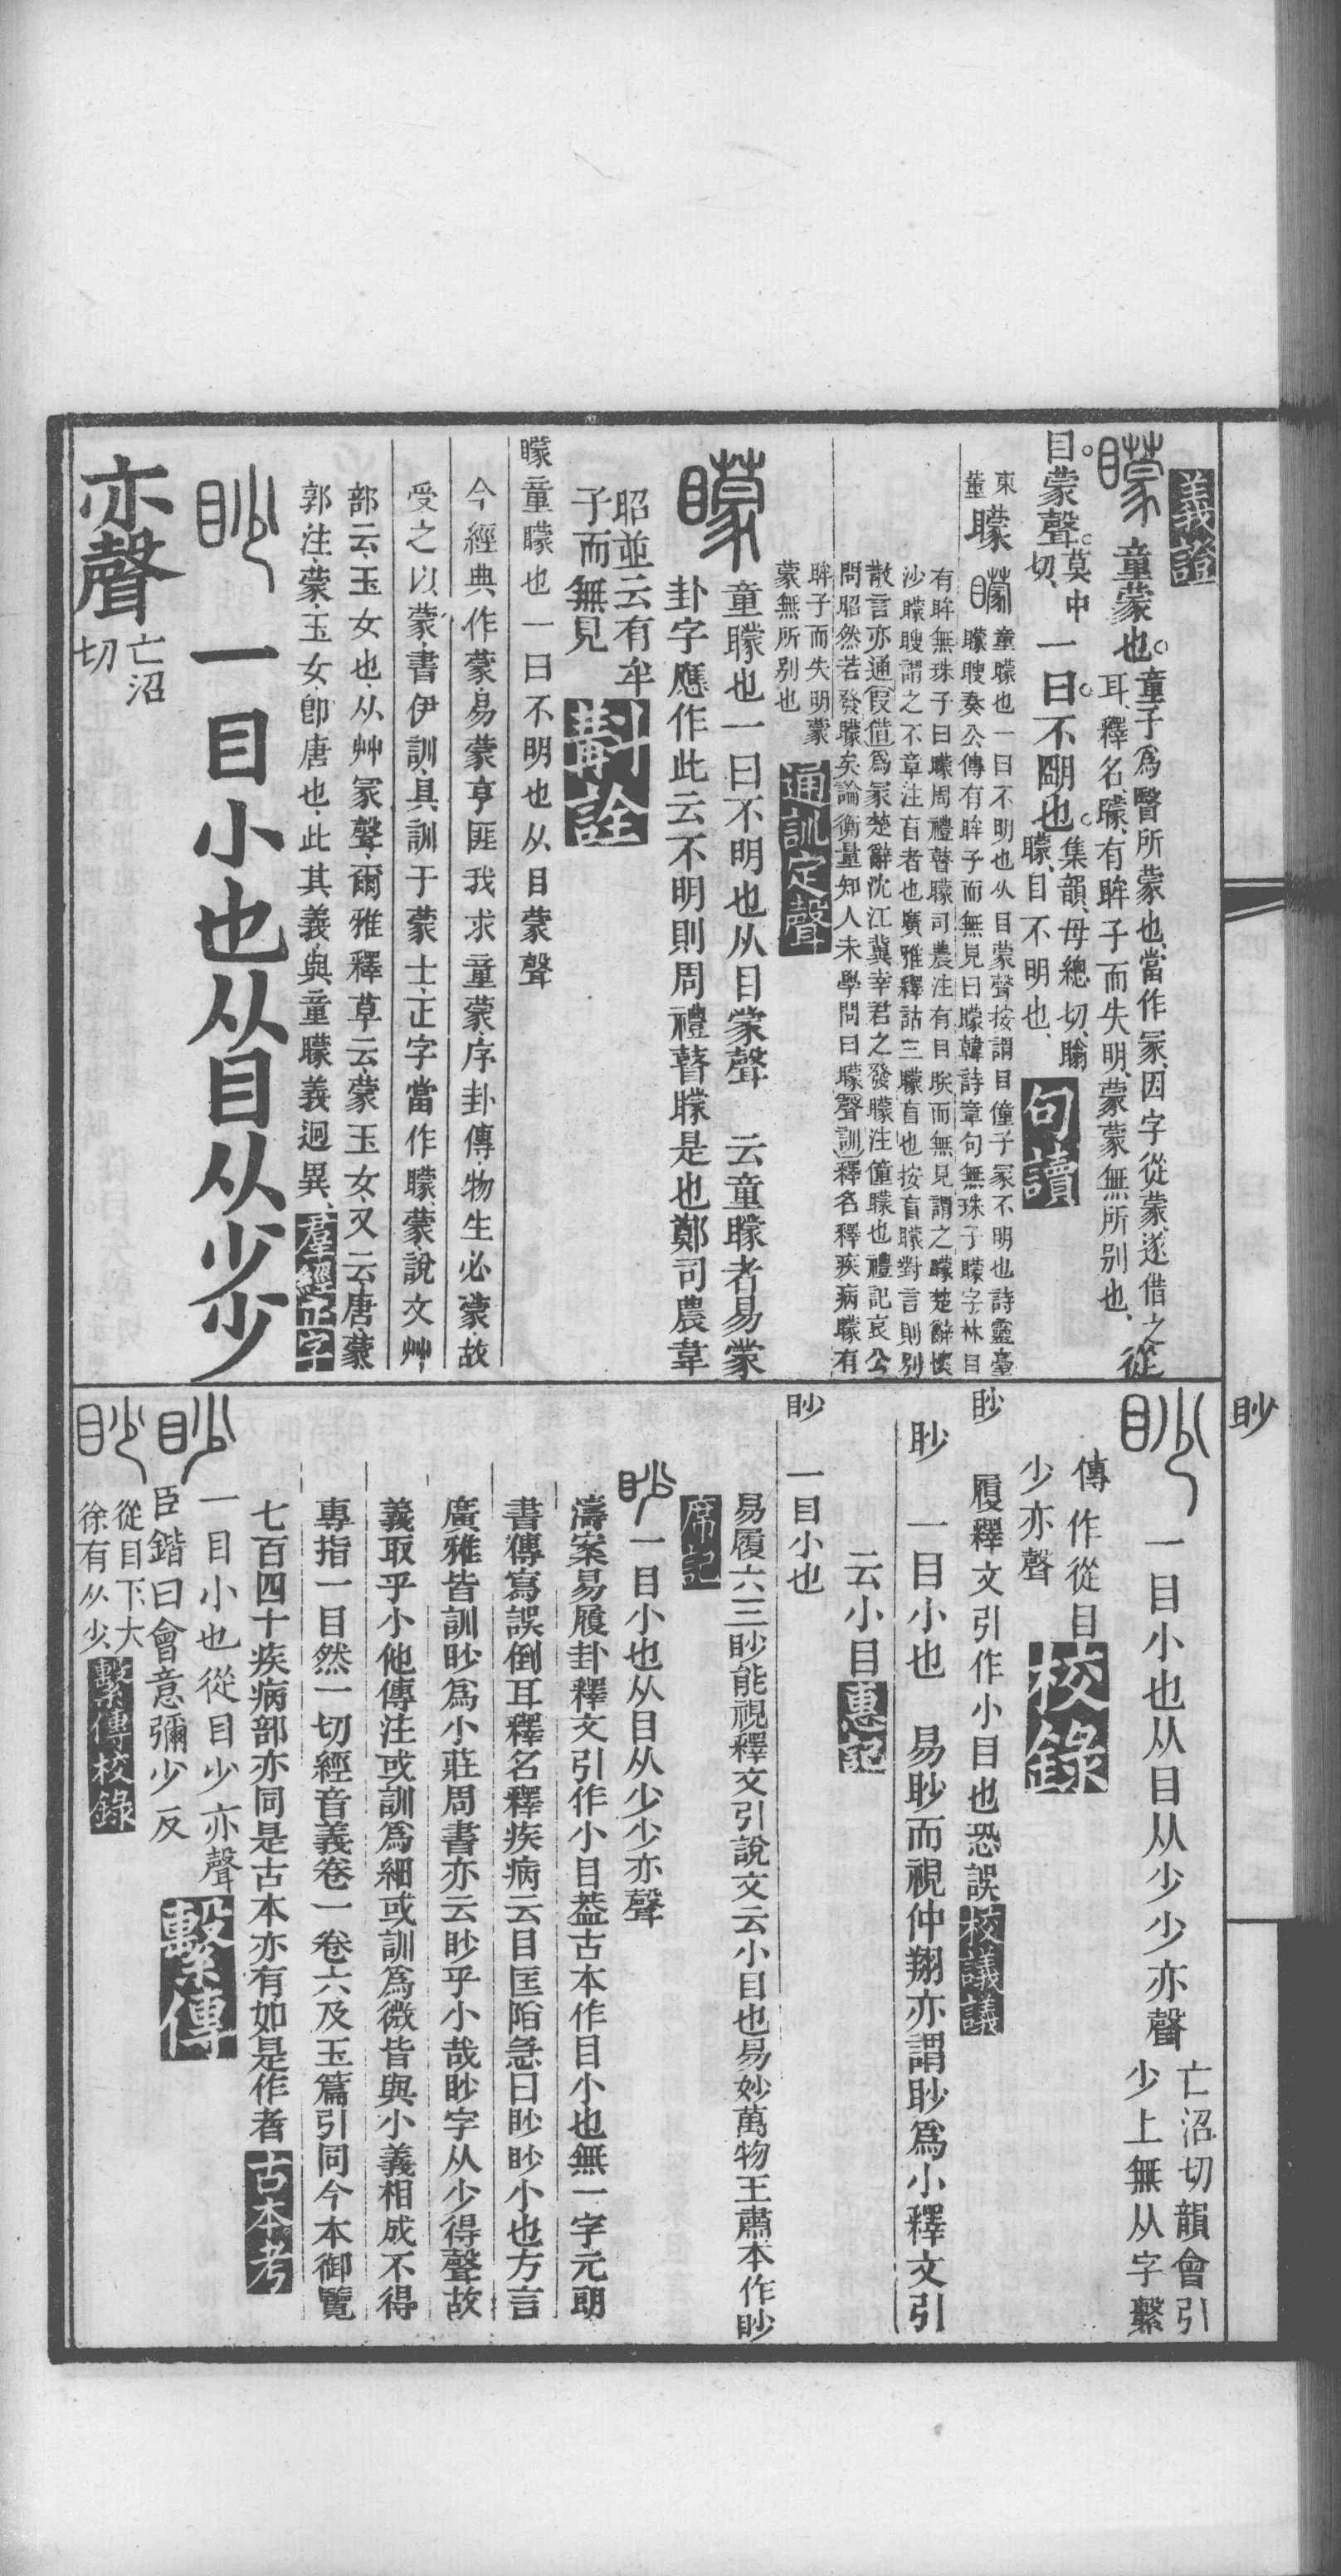 義證
矇童蒙也童子爲瞖所蒙也當作冡因字從蒙遂借之從
耳釋名矇有眸子而失明蒙蒙無所別也
目蒙聲莫中切一曰不朙也集韻母總切
矇目不明也
句讀
東
董
矇
矇童矇也一曰不明也从目蒙聲按謂目僮子冡不明也詩靈臺
矇瞍奏公傳有眸子而無見曰矇韓詩章句無珠子曰矇字林目
有眸無珠子曰矇周禮瞽矇司農注有目眹而無見謂之矇楚辭懷
沙矇瞍謂之不章注盲者也廣雅釋詁三矇盲也按盲矇對言則別
散言亦通叚借爲冡楚辭沈江冀幸君之發矇注僮矇也禮記哀公
問昭然若發矇矣論衡量知人未學問曰矇聲訓釋名釋疾病矇有
眸子而失明蒙
蒙無所別也
通訓定聲
矇童矇也一曰不明也从目蒙聲 云童矇者易蒙
卦字應作此云不明則周禮瞽矇是也鄭司農韋
昭並云有牟
子而無見
斠詮
矇童矇也一曰不明也从目蒙聲
今經典作蒙易蒙亨匪我求童蒙序卦傳物生必蒙故
受之以蒙書伊訓具訓于蒙士正字當作矇蒙說文艸
部云玉女也从艸冡聲爾雅釋草云蒙玉女又云唐蒙
郭注蒙玉女卽唐也此其義與童矇義迥異
羣經正字
眇一目小也从目从少少
亦聲亡沼
切
眇
眇一目小也从目从少少亦聲亡沼切韻會引
少上無从字繫
傳作從目
少亦聲
校錄
眇
履釋文引作小目也恐誤
校議議
眇一目小也 易眇而視仲翔亦謂眇爲小釋文引
云小目
惠記
眇一目小也
易履六三眇能視釋文引說文云小目也易妙萬物王肅本作眇
席記
眇一目小也从目从少少亦聲
濤案易履卦釋文引作小目葢古本作目小也無一字元朗
書傳寫誤倒耳釋名釋疾病云目匡陷急曰眇眇小也方言
廣雅皆訓眇爲小莊周書亦云眇乎小哉眇字从少得聲故
義取乎小他傳注或訓爲細或訓爲微皆與小義相成不得
專指一目然一切經音義卷一卷六及玉篇引同今本御覽
七百四十疾病部亦同是古本亦有如是作者
古本考
眇一目小也從目少亦聲
臣鍇曰會意彌少反
繫傳
眇從目下大
徐有从少
繫傳校錄